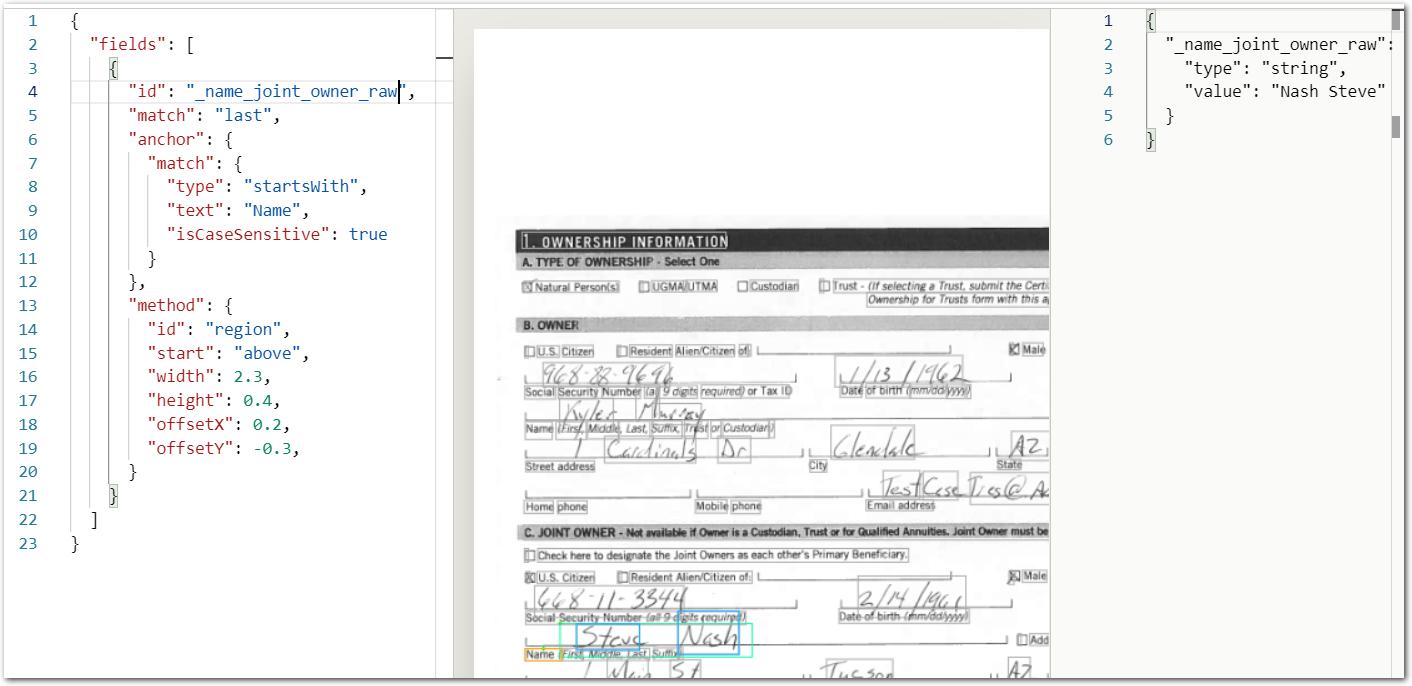 1 {
2 "fields": [
3 {
4 "id": "_name_joint_owner_raw",
5 "match": "last",
6 "anchor": {
7 "match": {
8 "type": "startsWith",
9 "text": "Name",
10 "isCaseSensitive": true
11 }
12 },
13 "method": {
14 "id": "region",
15 "start": "above",
16 "width": 2.3,
17 "height": 0.4,
18 "offsetX": 0.2,
19 "offsetY": -0.3,
20 }
21 }
22 ]
23 }
1. OWNERSHIP INFORMATION
A. TYPE OF OWNERSHIP - Select One
Natural Person(s) UGMA/UTMA Custodian Trust - (If selecting a Trust, submit the Certi
Ownership for Trusts form with this a
B. OWNER
U.S. Citizen Resident Alien/Citizen of: Male
968-88-9696 1/13/1962
Social Security Number (all 9 digits required) or Tax ID Date of birth (mm/dd/yyyy)
Kyler Murray
Name (First, Middle, Last, Suffix, Trust or Custodian)
1 Cardinals Dr Glendale AZ
Street address City State
TestCase Ties@ A
Home phone Mobile phone Email address
C. JOINT OWNER - Not available if Owner is a Custodian, Trust or for Qualified Annuities. Joint Owner must be
Check here to designate the Joint Owners as each other's Primary Beneficiary.
U.S. Citizen Resident Alien/Citizen of: Male
668-11-3344 2/14/1961
Social Security Number (all 9 digits required) Date of birth (mm/dd/yyyy)
Steve Nash Add
Name (First, Middle, Last, Suffix)
1 Main St Tucson AZ
1 {
2 "_name_joint_owner_raw":
3 "type": "string",
4 "value": "Nash Steve"
5 }
6 }